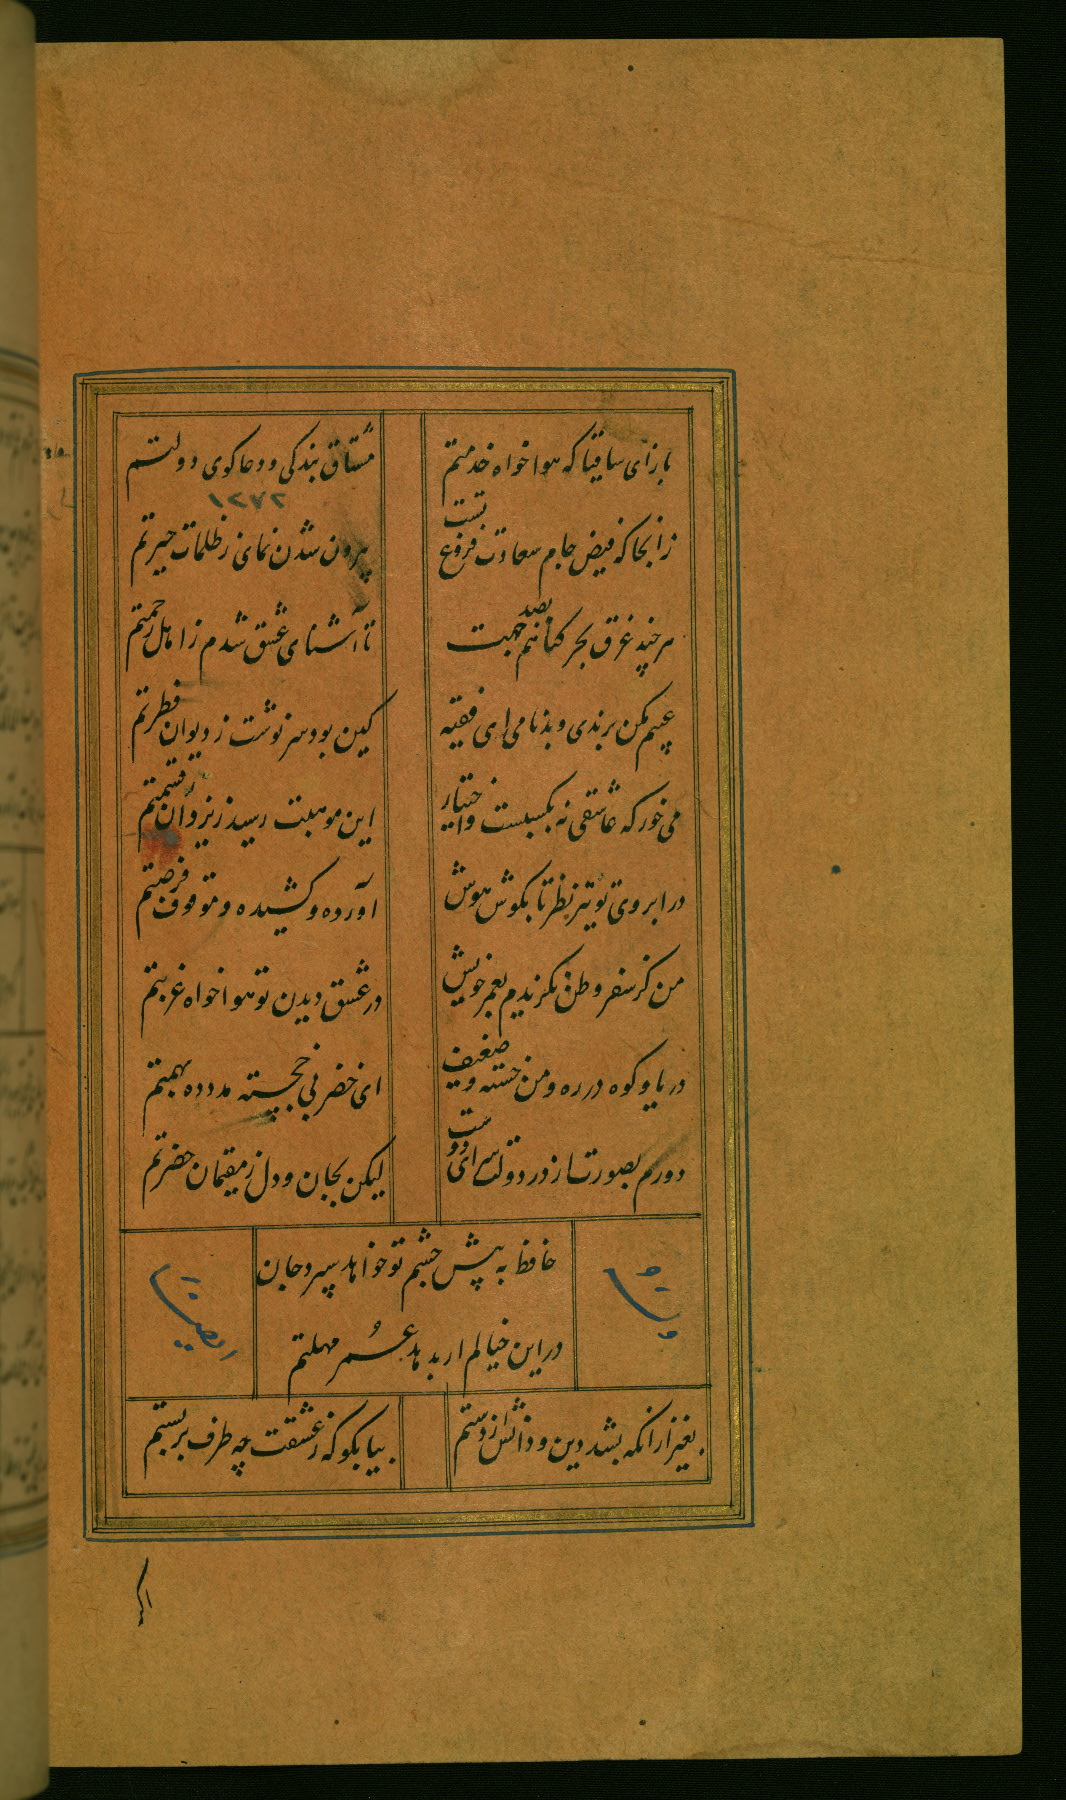 بازآی ساقیا که هوا خواه خدمتم
مشتاق بندگی و دعا گوی دولتم
۱۲۷۲
زانجا که فیض جام سعادت فروغ تست
بیرون شدن نمای ز ظلمات حیرتم
هر چند غرق بحر گناهم بصد جهت
تا آشنای عشق شدم ز اهل رحمتم
عیبم مکن برندی و بدنامی ای فقیه
کین بود سرنوشت ز دیوان فطرتم
می خور که عاشقی نه بکسبست و اختیار
این موهبت رسید ز
در ابروی تو تیر نظر تا بگوش هوش
آورده و کشیده و موقوف فرصتم
من کز سفر وطن نگزیدم بعمر خویش
در عشق دیدن تو هوا خواه غربتم
دریا و کوه در ره و من خسته و ضعیف
ای خضر پی خجسته مدد ده بهمتم
دورم بصورت از در دولتسرای دوست
لیکن بجان و دل ز مقیمان حضرتم
حافظ به پیش چشم تو خواهد سپرد جان
در این خیالم ار بدهد عمر مهلتم
وله
ایضا
بغیر ازانکه بشد دین و دانش از دستم
بیا بگو که ز عشقت چه طرف بربستم
اگر